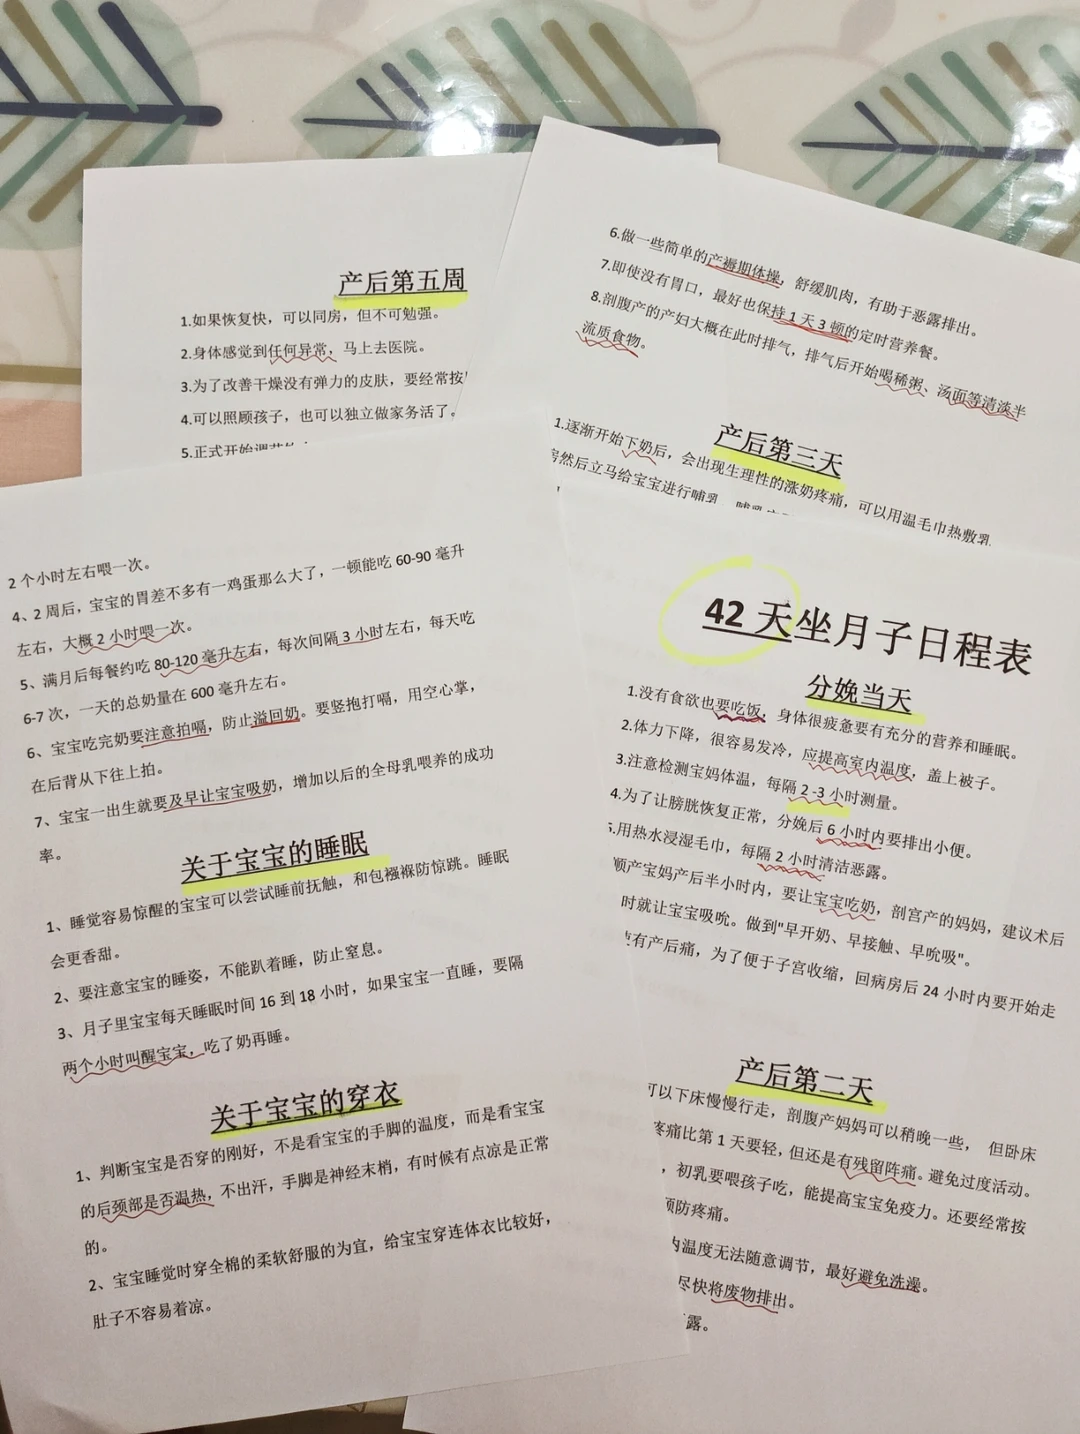 产后第五周
1.如果恢复快，可以同房，但不可勉强。
2.身体感觉到任何异常，马上去医院。
3.为了改善干燥没有弹力的皮肤，要经常按
4.可以照顾孩子，也可以独立做家务活了。
5.正式开始调节
6.做一些简单的产褥期体操，舒缓肌肉，有助于恶露排出。
7.即使没有胃口，最好也保持 1 天 3 顿的定时营养餐。
8.剖腹产的产妇大概在此时排气，排气后开始喝稀粥、汤面等清淡半
流质食物。
产后第三天
1.逐渐开始下奶后，会出现生理性的涨奶疼痛，可以用温毛巾热敷乳
房然后立马给宝宝进行哺乳
2 个小时左右喂一次。
4、2 周后，宝宝的胃差不多有一鸡蛋那么大了，一顿能吃 60-90 毫升
左右，大概 2 小时喂一次。
5、满月后每餐约吃 80-120 毫升左右，每次间隔 3 小时左右，每天吃
6-7 次，一天的总奶量在 600 毫升左右。
6、宝宝吃完奶要注意拍嗝，防止溢回奶。要竖抱打嗝，用空心掌，
在后背从下往上拍。
7、宝宝一出生就要及早让宝宝吸奶，增加以后的全母乳喂养的成功
率。
关于宝宝的睡眠
1、睡觉容易惊醒的宝宝可以尝试睡前抚触，和包襁褓防惊跳。睡眠
会更香甜。
2、要注意宝宝的睡姿，不能趴着睡，防止窒息。
3、月子里宝宝每天睡眠时间 16 到 18 小时，如果宝宝一直睡，要隔
两个小时叫醒宝宝，吃了奶再睡。
关于宝宝的穿衣
1、判断宝宝是否穿的刚好，不是看宝宝的手脚的温度，而是看宝宝
的后颈部是否温热，不出汗，手脚是神经末梢，有时候有点凉是正常
的。
2、宝宝睡觉时穿全棉的柔软舒服的为宜，给宝宝穿连体衣比较好，
肚子不容易着凉。
42 天坐月子日程表
分娩当天
1.没有食欲也要吃饭，身体很疲惫要有充分的营养和睡眠。
2.体力下降，很容易发冷，应提高室内温度，盖上被子。
3.注意检测宝妈体温，每隔 2 -3 小时测量。
4.为了让膀胱恢复正常，分娩后 6 小时内要排出小便。
5.用热水浸湿毛巾，每隔 2 小时清洁恶露。
顺产宝妈产后半小时内，要让宝宝吃奶，剖宫产的妈妈，建议术后
时就让宝宝吸吮。做到"早开奶、早接触、早吮吸"。
有产后痛，为了便于子宫收缩，回病房后 24 小时内要开始走
产后第二天
可以下床慢慢行走，剖腹产妈妈可以稍晚一些， 但卧床
疼痛比第 1 天要轻，但还是有残留阵痛。避免过度活动。
，初乳要喂孩子吃，能提高宝宝免疫力。还要经常按
预防疼痛。
内温度无法随意调节，最好避免洗澡。
尽快将废物排出。
露。